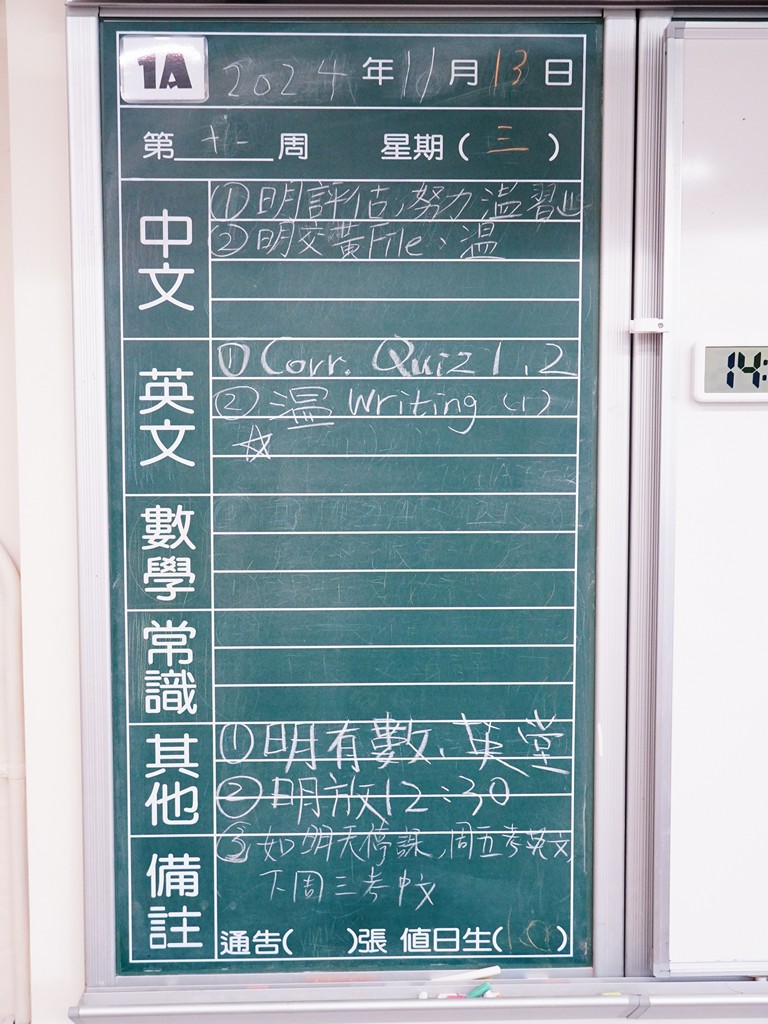 1A 2024年11月13日
第十一周 星期(三)
中文
①明評估,努力溫習
②明交黃File、溫
英文
① Corr. Quiz 1, 2
②溫 Writing (1)
☆
數學
常識
其他
①明有數、英堂
②明放12:30
備註
③如明天停課,周五考英文,
下周三考中文
通告( )張 值日生( )
14: